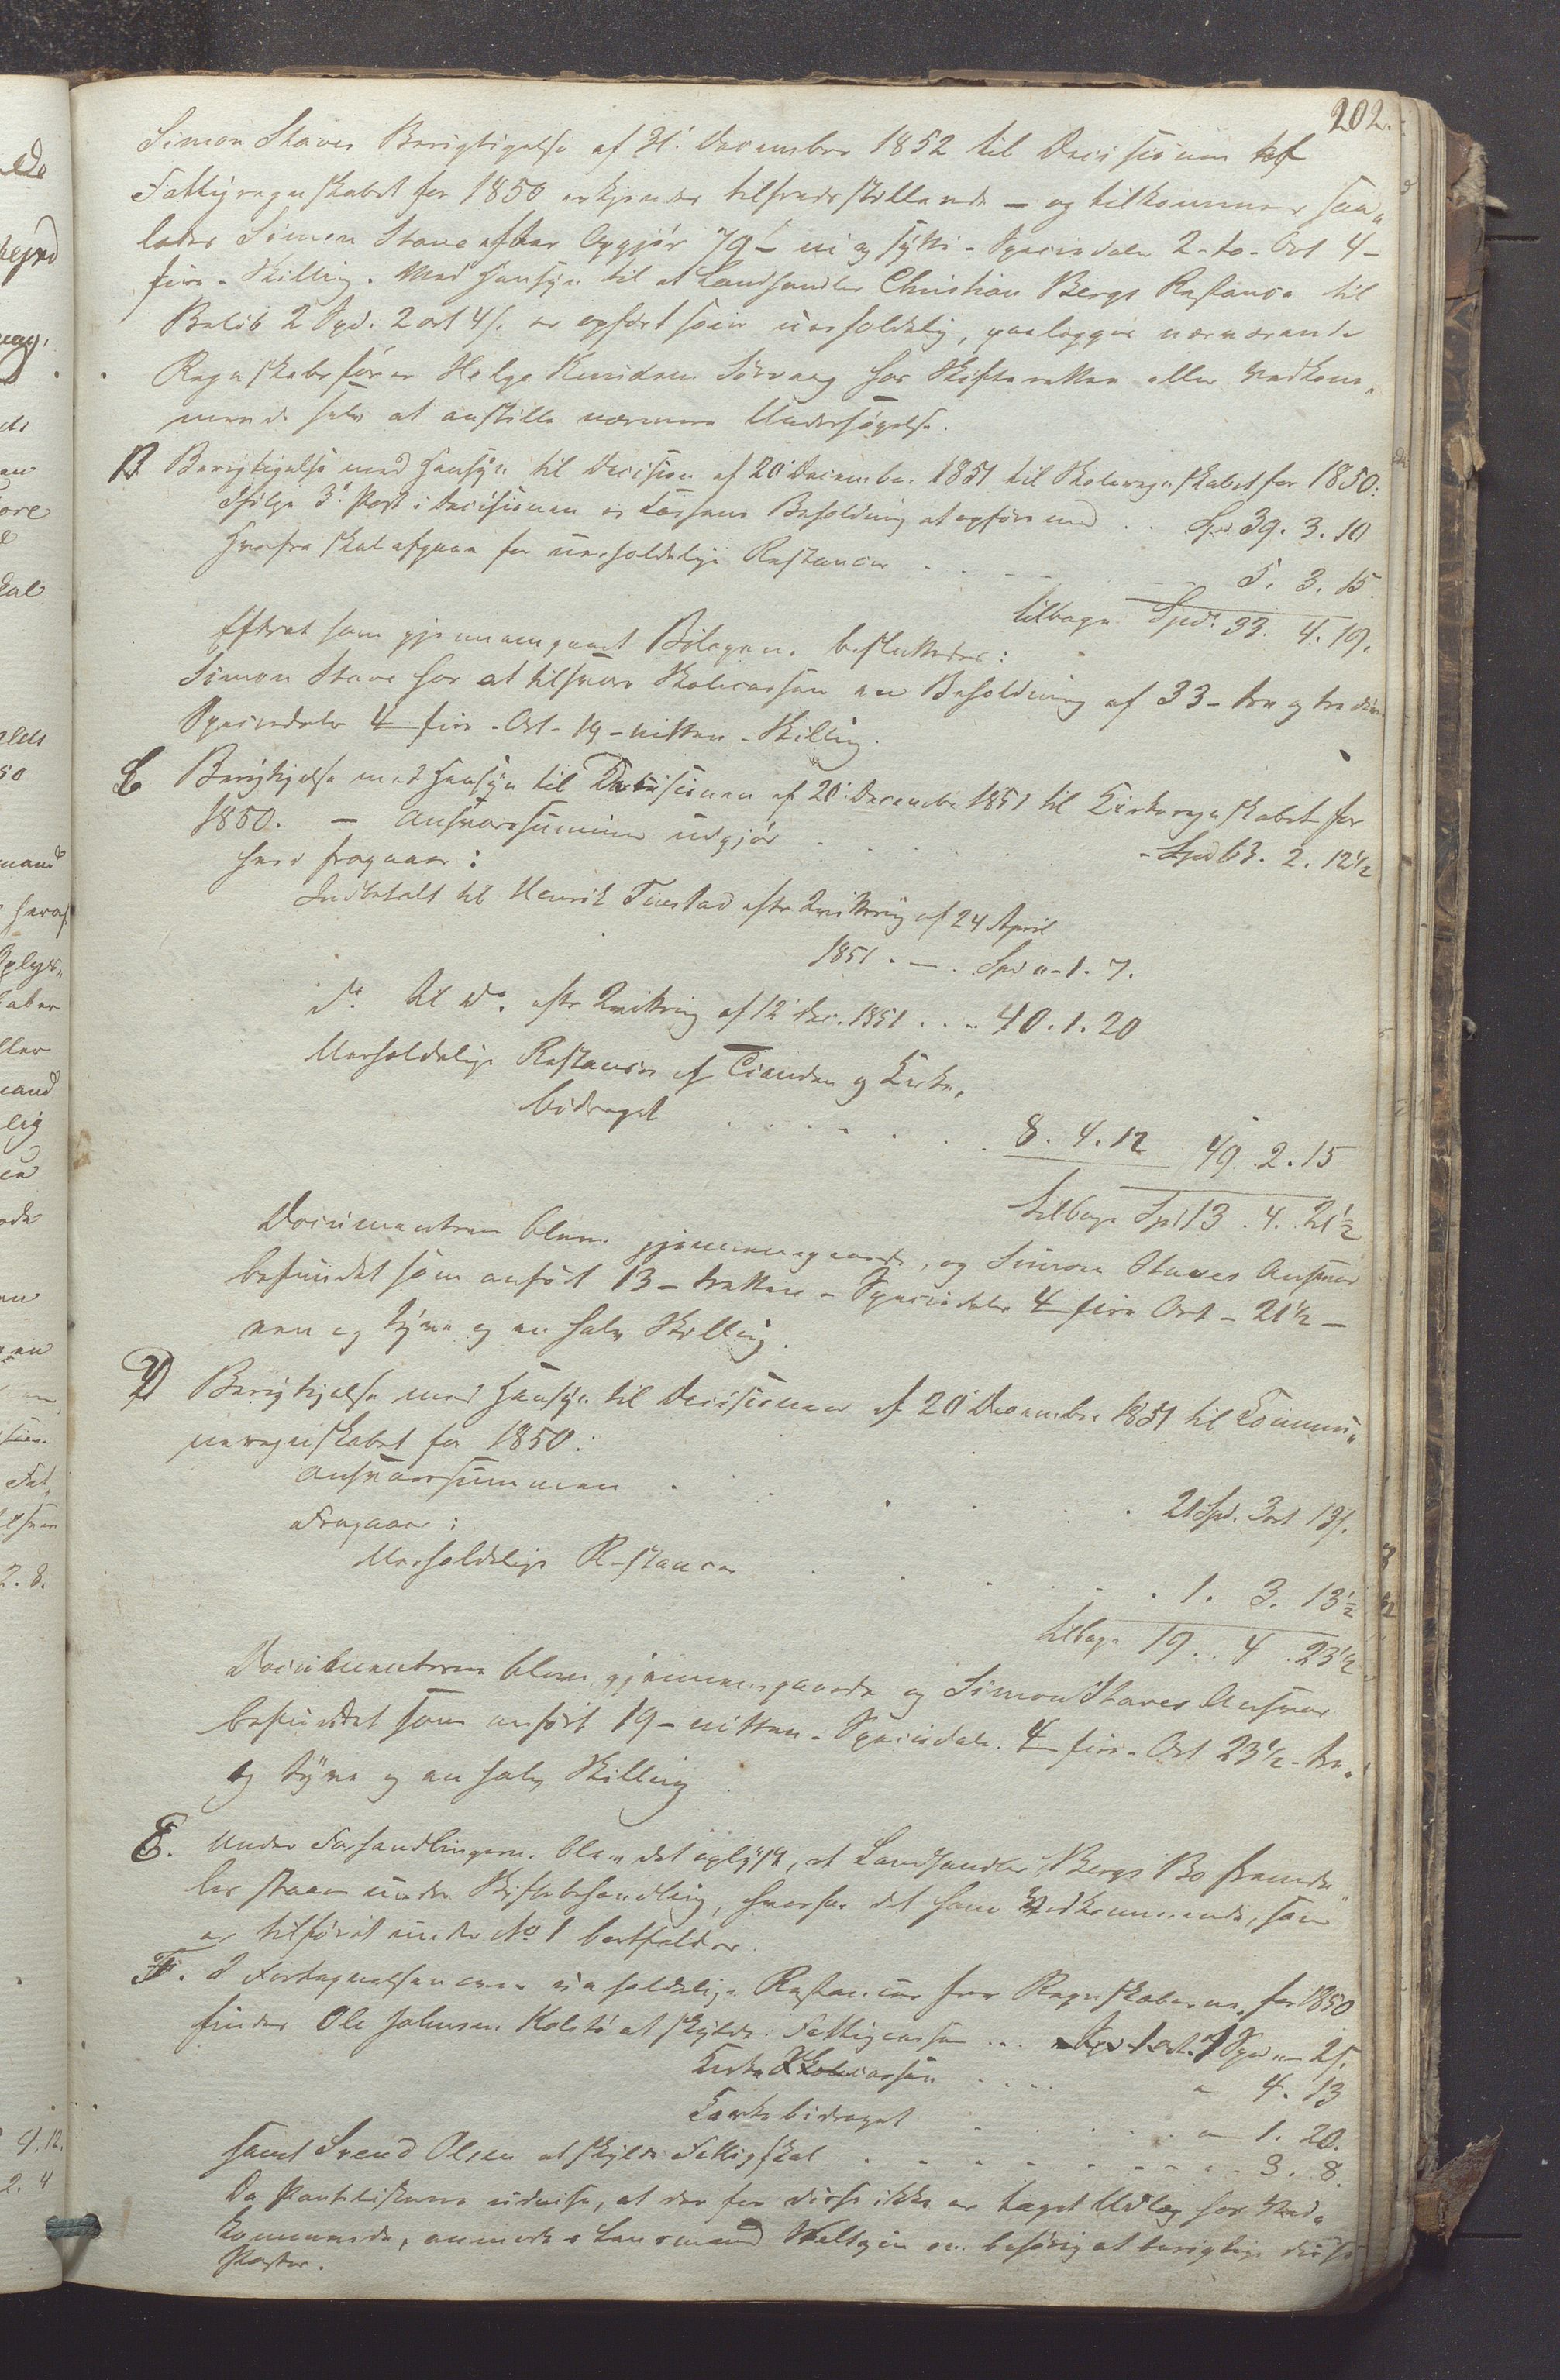 202.
Simon Staves Berigtigelse af 31. December 1852 til Decisionen af
Fattigregnskabet for 1850 erkjendes tilfredsstillende – og tilkommer saa„
ledes Simon Stave efter Opgjør 79 – ni og sytti – Speciedaler 2 – to – Ort 4 –
fire – Skilling. Med Hensyn til at Landhandler Christian Bergs Restance til
Beløb 2 Spd. 2 ort 4 s. er opført som uerholdelig, paalegges nærværende
Regnskabsfører Helge Knudsen Sørvaag hos Skifteretten eller Vedkom„
mende selv at anstille nærmere Undersøgelse.
B. Berigtigelse med Hensyn til Decision af 20. December 1851 til Skoleregnskabet for 1850:
Ifølge 3. Post i Decisionen er Cassens Beholdning at opføre med . . Spd. 39. 3. 10
Herfra skal afgaae for uerholdelige Restancer . . . 5. 3. 15.
tilbage Spd. 33. 4. 19.
Efterat have gjennemgaaet Bilagene besluttedes:
Simon Stave har at tilsvare Skolecassen en Beholdning af 33 – tre og tredive
Speciedaler 4 – fire – Ort – 19 – nitten – Skilling.
C Berigtigelse med Hensyn til Decisionen af 20. December 1851 til Kirkeregnskabet for
1850. – Ansvarssummen udgjør . . . Spd 63. 2. 12½
heri fragaaer:
Indbetalt til Henrik Tuestad efter Qvittering af 24 April
1851 . – . Spd „ - 1. 7.
do. til do. efter Qvittering af 12 Dec. 1851 . . „ 40. 1. 20
Uerholdelige Restancer af Tienden og Kirke„
bidraget . . . . . . 8. 4. 12 49. 2. 15
tilbage Spd 13. 4. 21½
Documenterne bleve gjennemgaaede, og Simon Staves Ansvar
befundet som anført 13 – tretten – Speciedaler 4 – fire Ort – 21½ –
een og tyve og en halv Skilling.
D Berigtigelse med Hensyn til Decisionen af 20 December 1851 til Commu„
neregnskabet for 1850:
Ansvarssummen . . . . . 21 Spd. 3 ort 13 s.
Fragaaer:
Uerholdelige Restancer . . . . . 1. 3. 13½
tilbage 19. . 4 . 23½
Documenterne bleve gjennemgaaede og Simon Staves Ansvar
befundet som anført 19 – nitten – Speciedaler 4 – fire – Ort 23½ – tre„
og tyve og en halv Skilling
E. Under Forhandlingerne blev det oplyst, at Landhandler Bergs Bo fremde„
les staaer under Skiftebehandling, hvorfor det hans Vedkommende, som
er tilført under No 1 bortfalder.
F. I Fortegnelsen over uerholdelige Restancer fra Regnskaberne for 1850
findes Ole Johnsen Kolstø at skylde: Fattigcassen . . . Spd „ – 2 s.
Skolecassen . . . . „ 4. 13
Kirkebidraget . . . . . „ 1. 20.
samt Svend Olsen at skylde Fattigskat . . . . . . . 3. 8
Da Panteliskerne udvise, at der for disse ikke er taget Udlæg hos Ved„
kommende, anmodes Lensmand om behørig at berigtige disse
Poster.